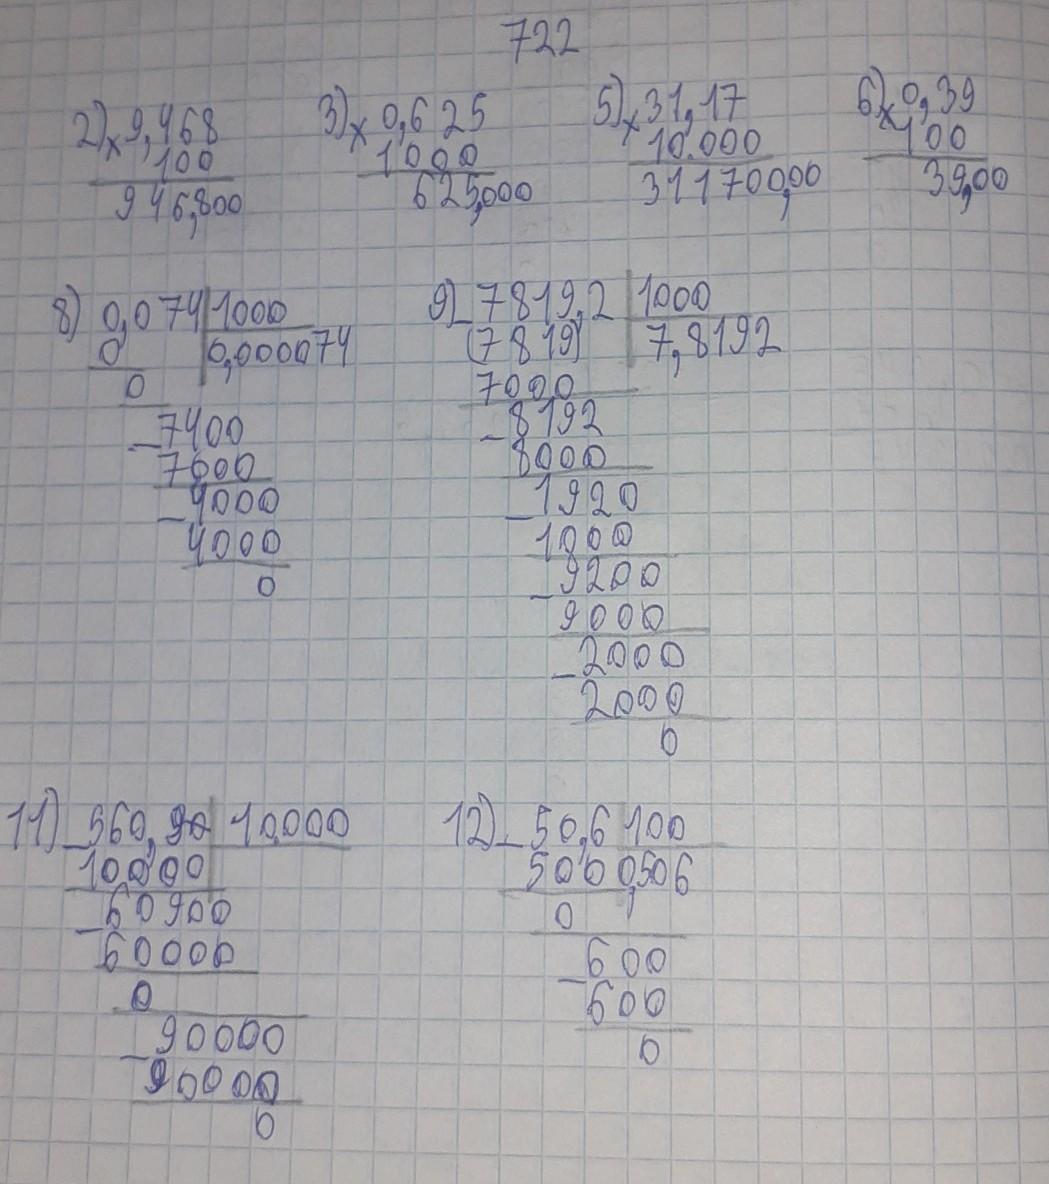 722
2) × 9,468
100
946,800
3) × 0,625
1000
625,000
5) × 31,17
10.000
311700,00
6) × 0,39
100
39,00
8) 0,074 | 1000
0 | 0,000074
0
- 7400
7000
- 4000
4000
0
9) - 7819,2 | 1000
(7819) | 7,8192
7000
- 8192
8000
- 1920
1000
- 9200
9000
- 2000
2000
0
11) - 560,90 | 10.000
10000
- 60900
60000
0
- 90000
90000
0
12) - 50,6 100
500 0,506
0
- 600
600
0